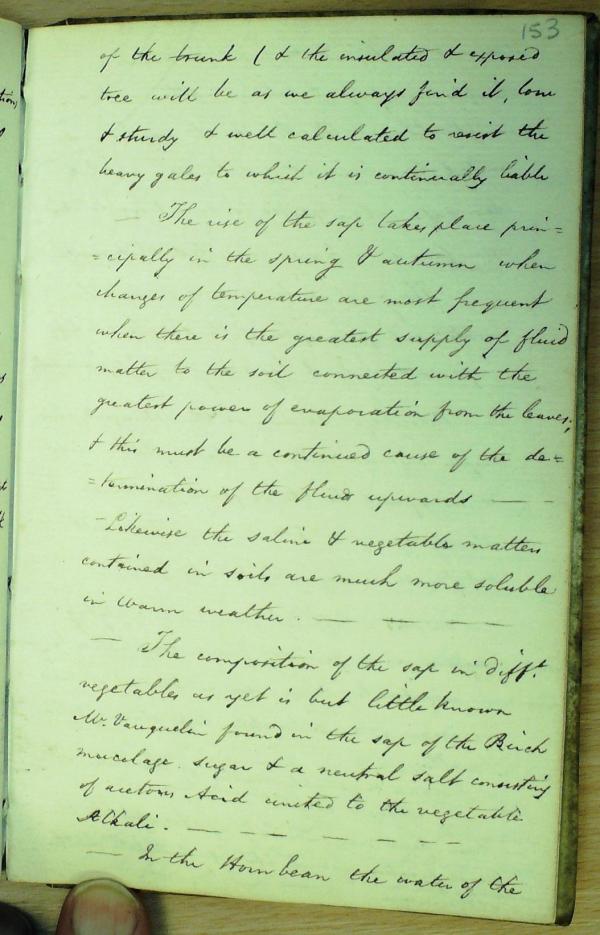 153
of the trunk ( & the insulated & exposed
tree will be as we always find it, low
& sturdy & well calculated to resist the
heavy gales to which it is continually liable
— The rise of the sap takes place prin=
=cipally in the spring & autumn when
changes of temperature are most frequent
when there is the greatest supply of fluid
matter to the soil connected with the
greatest power of evaporation from the leaves;
& this must be a continued cause of the de=
=termination of the fluid upwards — —
– Likewise the saline & vegetable matters
contained in soils are much more soluble
in warm weather. — — — —
— The composition of the sap in diff.t
vegetables as yet is but little known
Mr. Vauquelin found in the sap of the Birch
mucilage. sugar & a neutral salt consisting
of acetous Acid united to the vegetable
Alkali. — — — — — —
— In the Hornbean the water of the